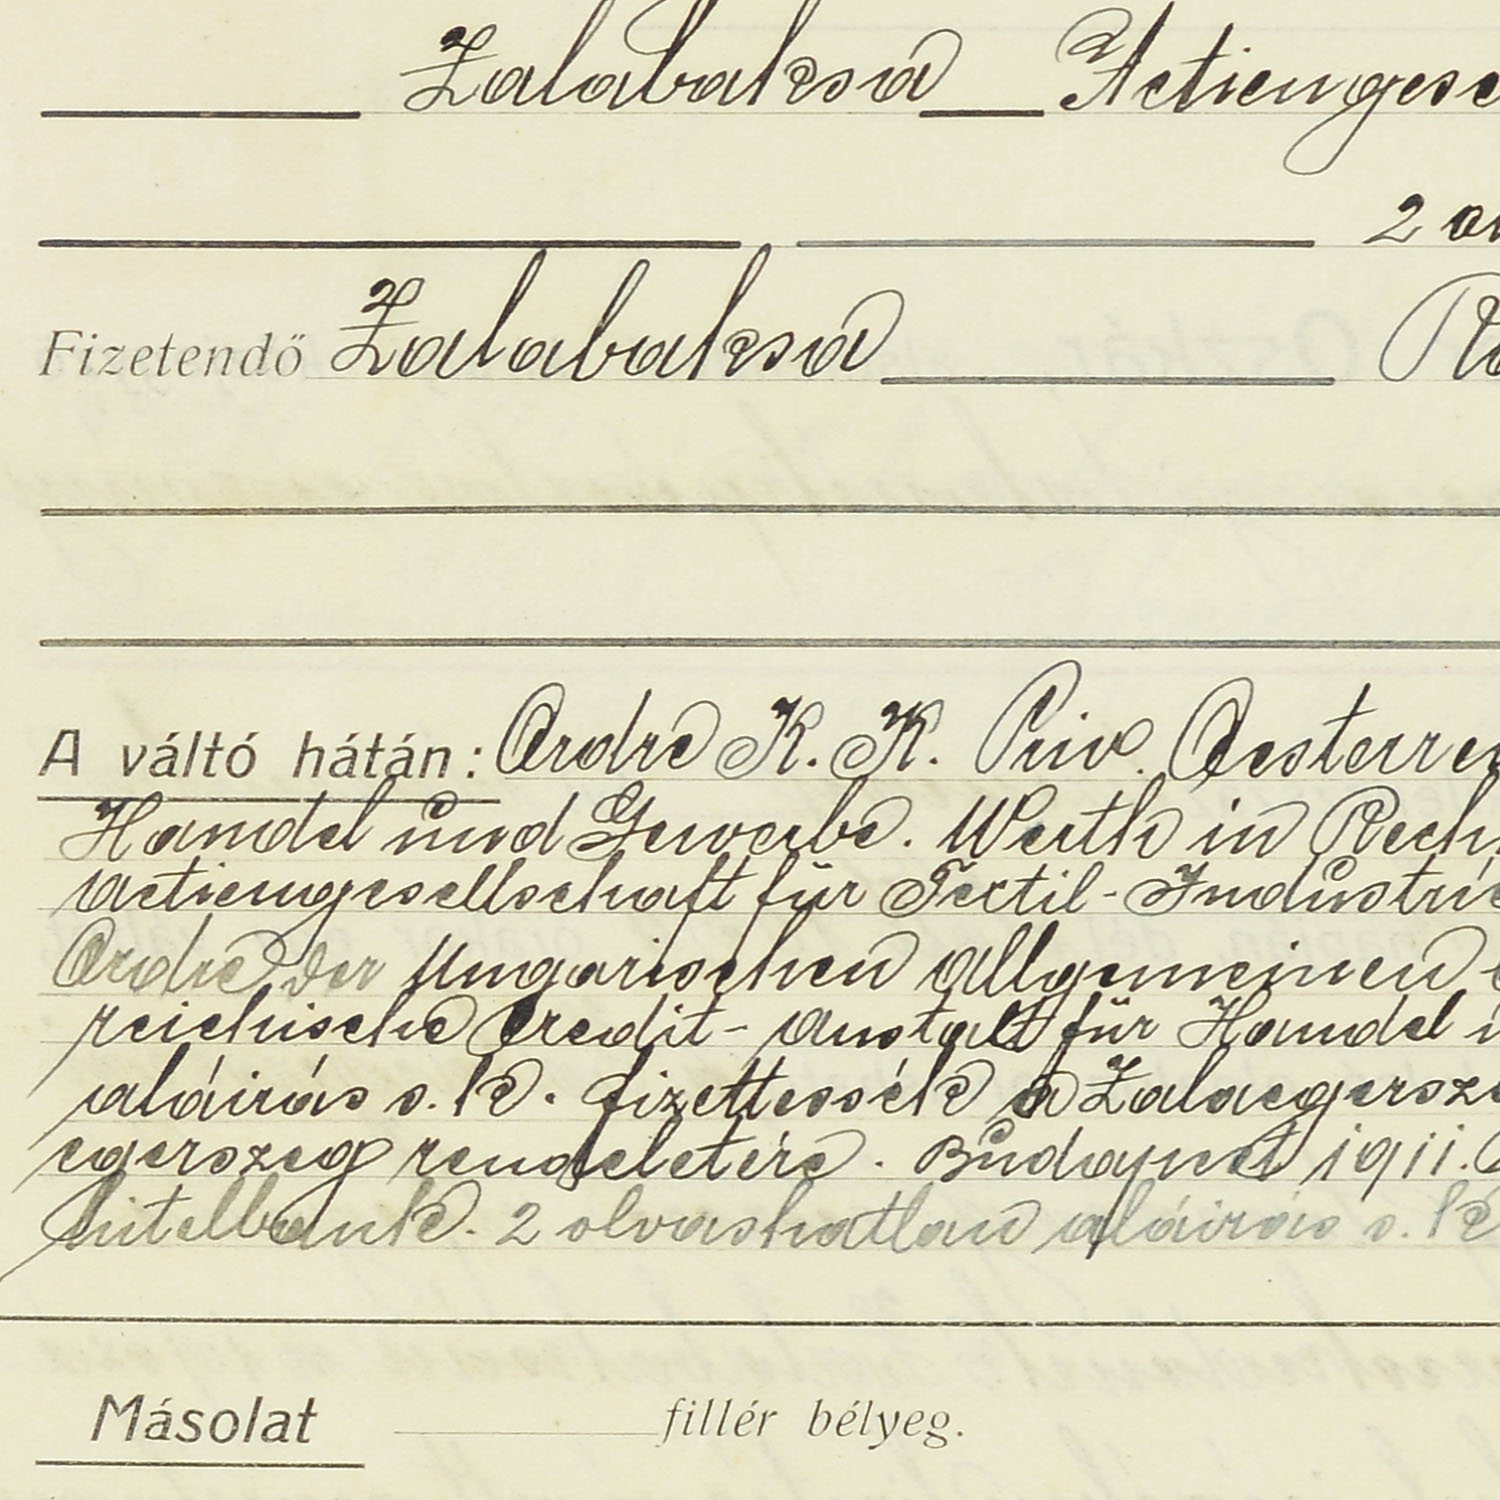 Zalabaksa Actiengese
2 o
Fizetendő Zalabaksa
A váltó hátán: Ordre K. K. Priv. Oesterre
Handel und Gewerbe. Werth in Rech
Actiengesellschaft für Textil-Industrie
Ordre der Ungarischen allgemeinen
reichische Credit-Anstalt für Handel
aláirás s. k. fizettessék a Zalaegersze
egerszeg rendeletére. Budapest 1911.
hitelbank. 2 olvashatlan aláirás s. k
Másolat fillér bélyeg.